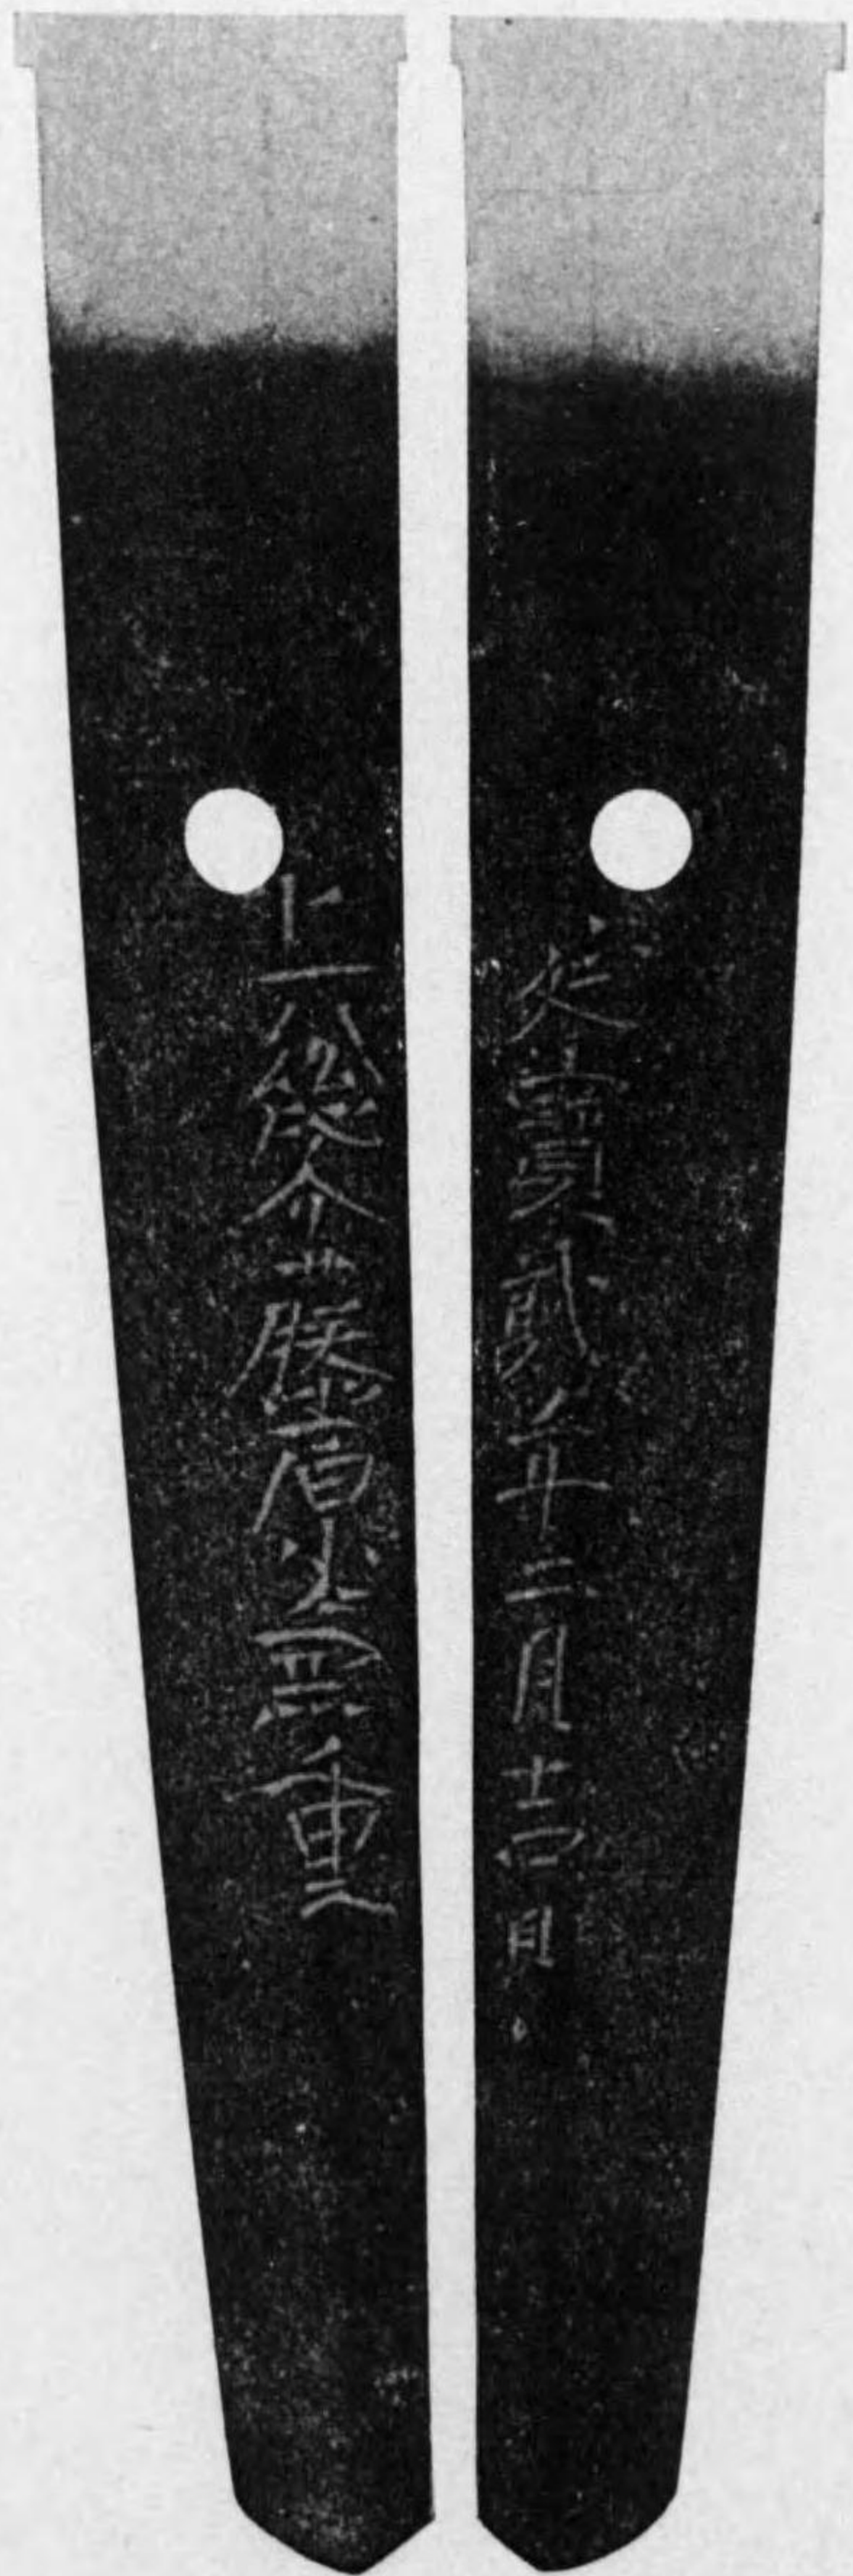 上総介藤原兼重
延寶貳年二月吉日